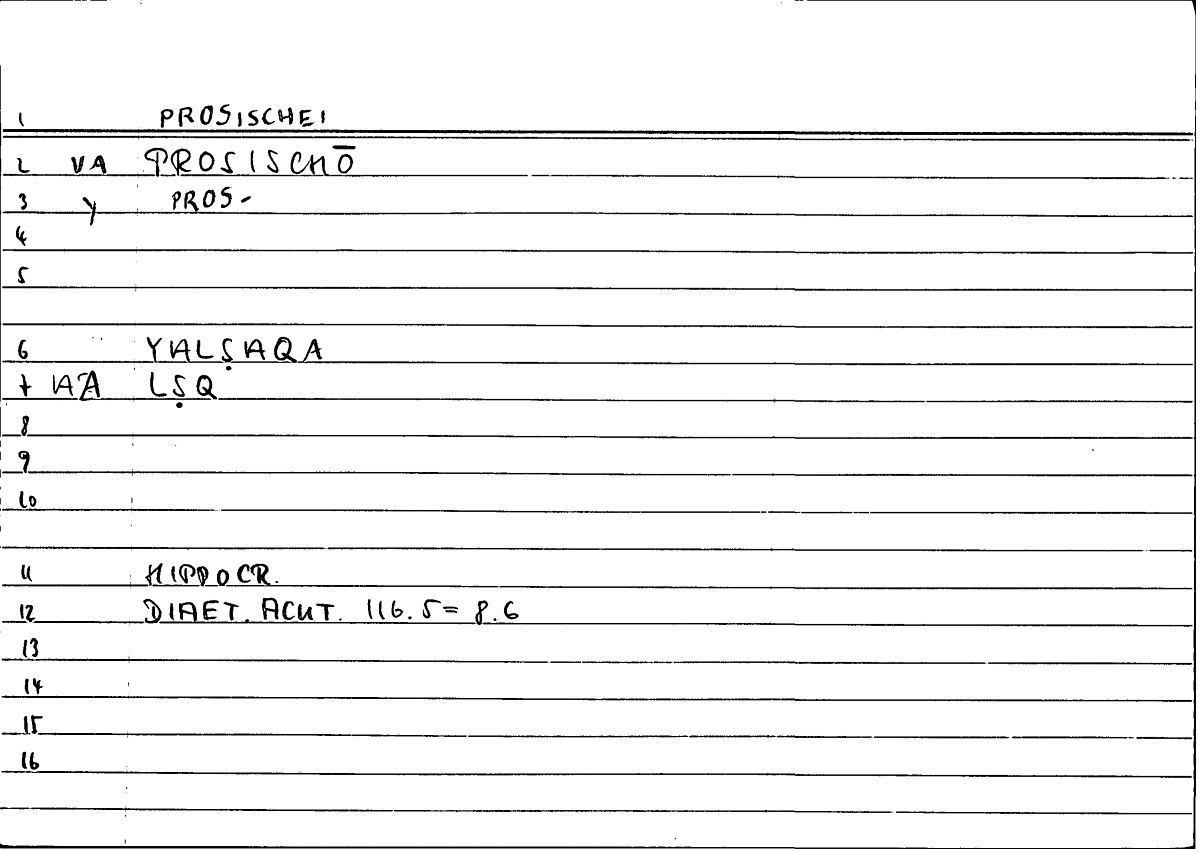 1 PROSISCHEI
2 VA PROSISCHŌ
3 Y PROS-
4
5
6 YALṢAQA
7 AA LṢQ
8
9
10
11 HIPPOCR.
12 DIAET. ACUT. 116.5 = 8.6
13
14
15
16